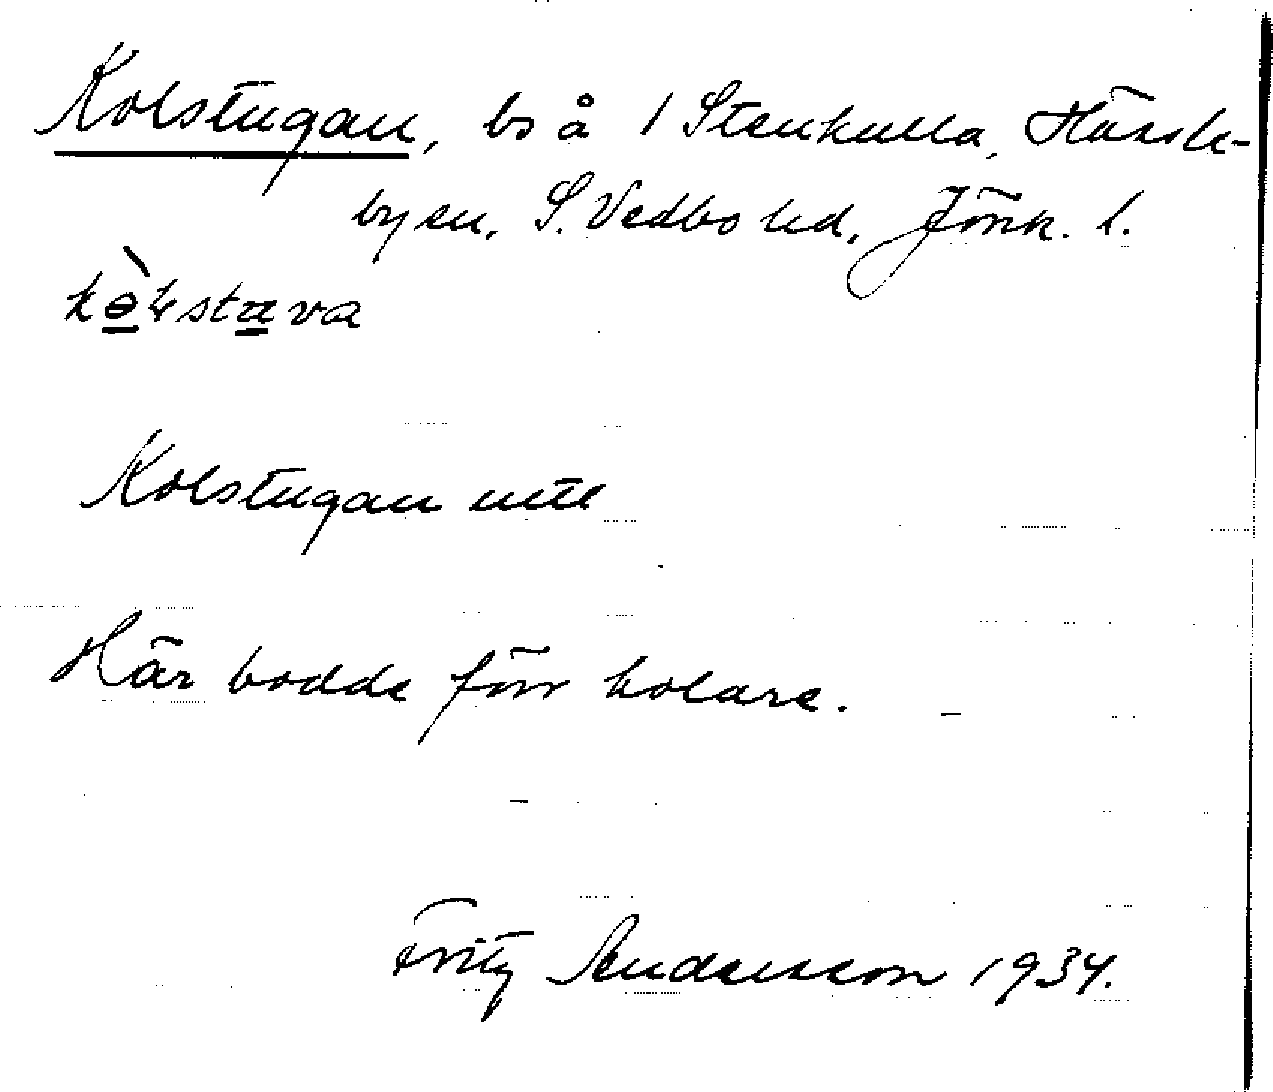 Kolstugan, bs å 1 Stenkulla, Hässle-
bysn, S. Vedbo hd, Jönk. l.
Kolstugan mtl
Här bodde förr kolare.
Fritz Andersson 1934.